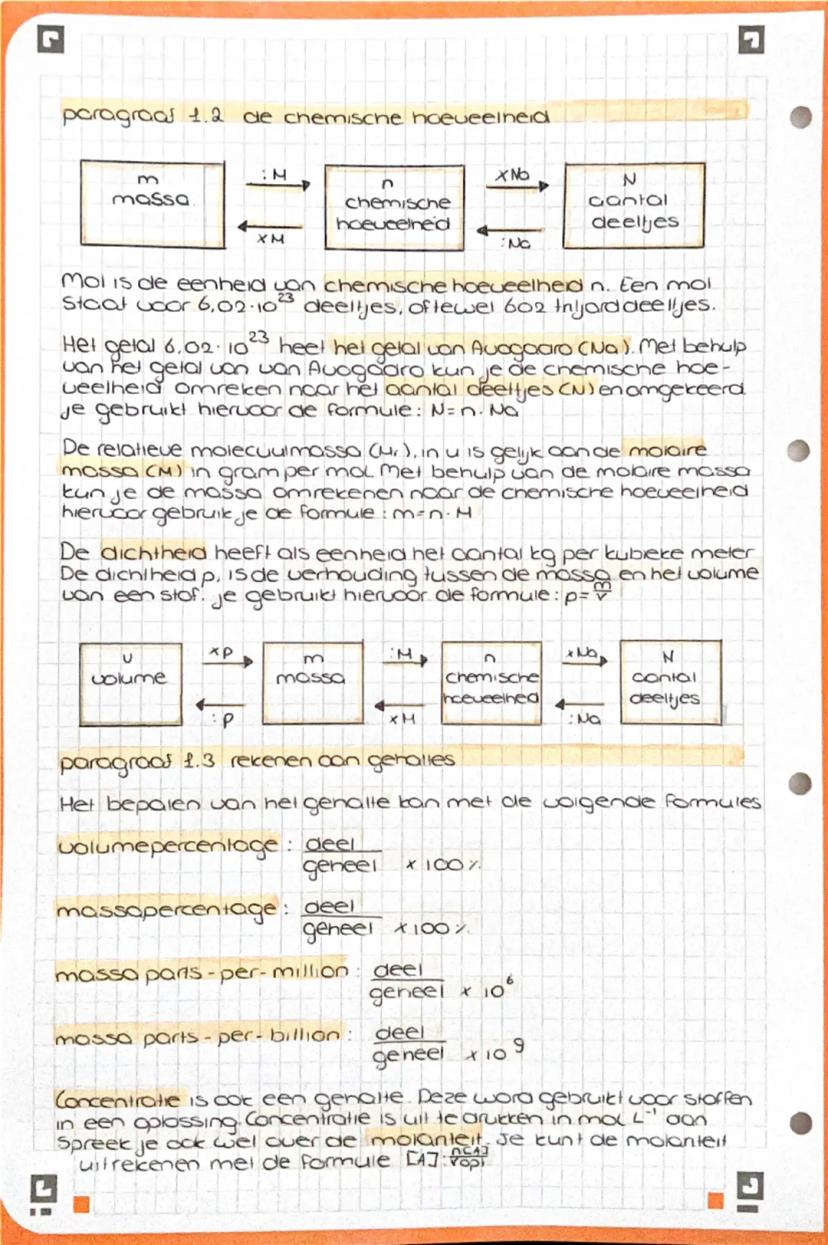 paragraaf 1.2 de chemische hoeveelheid
m massa
:M
xM
n chemische hoeveelheid
xNa
:Na
N aantal deeltjes
Mol is de eenheid van chemische hoeveelheid n. Een mol
staat voor 6,02·10²³ deeltjes, oftewel 602 triljard deeltjes.
Het getal 6,02·10²³ heet het getal van Avogadro (Na). Met behulp
van het getal van van Avogadro kun je de chemische hoe-
veelheid omreken naar het aantal deeltjes (N) en omgekeerd
je gebruikt hiervoor de formule: N=n·Na
De relatieve molecuulmassa (Mr), in u is gelijk aan de molaire
massa (M) in gram per mol. Met behulp van de molaire massa
kun je de massa omrekenen naar de chemische hoeveelheid
hiervoor gebruik je de formule: m=n·M
De dichtheid heeft als eenheid het aantal kg per kubieke meter
De dichtheid p, is de verhouding tussen de massa en het volume
van een stof. je gebruikt hiervoor de formule: p= m/v
v volume
xp
:p
m massa
:M
xM
n chemische hoeveelheid
xNa
:Na
N aantal deeltjes
paragraaf 1.3 rekenen aan gehaltes
Het bepalen van het gehalte kan met de volgende formules
volumepercentage: deel/geheel x 100%
massapercentage: deel/geheel x 100%
massa parts-per-million: deel/geheel x 10⁶
massa parts-per-billion: deel/geheel x 10⁹
Concentratie is ook een gehalte. Deze word gebruikt voor stoffen
in een oplossing. Concentratie is uit te drukken in mol L⁻¹ dan
spreek je ook wel over de molariteit. Je kunt de molariteit
uitrekenen met de formule [A]: n(A)/Vopl